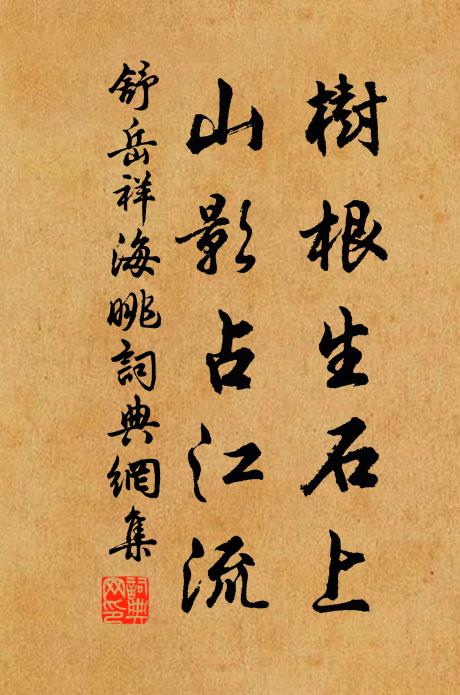 樹根生石上
山影占江流
舒岳祥海眺詞典網集
詞典网印